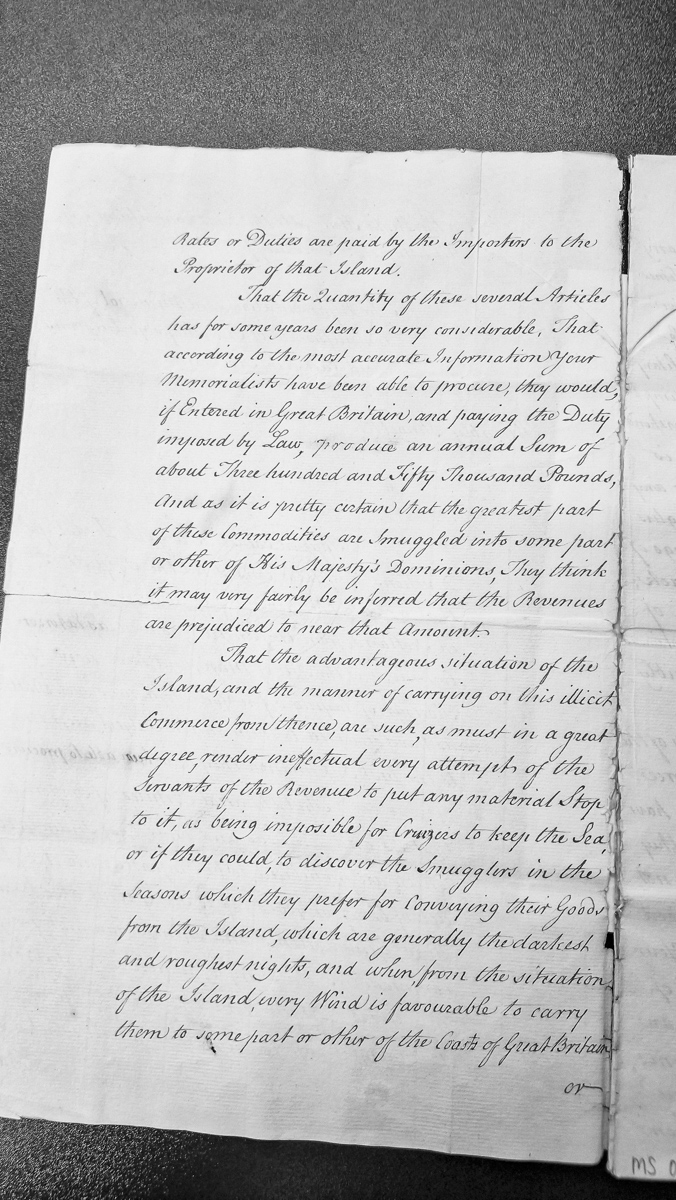 Rates or Duties are paid by the Importers to the
Proprietor of that Island.
That the Quantity of these several Articles
has for some years been so very considerable, That
according to the most accurate Information Your
Memorialists have been able to procure, they would,
if Entered in Great Britain, and paying the Duty
imposed by Law, produce an annual Sum of
about Three hundred and Fifty Thousand Pounds,
And as it is pretty certain that the greatest part
of these Commodities are Smuggled into some part
or other of His Majesty's Dominions, They think
it may very fairly be inferred that the Revenues
are prejudiced to near that Amount.
That the advantageous situation of the
Island, and the manner of carrying on this illicit
Commerce from thence, are such, as must in a great
degree, render ineffectual every attempt of the
Servants of the Revenue to put any material Stop
to it, as being imposible for Cruizers to keep the Sea,
or if they could, to discover the Smugglers in the
Seasons which they prefer for Conveying their Goods
from the Island, which are generally the darkest
and roughest nights, and when, from the situation
of the Island, every Wind is favourable to carry
them to some part or other of the Coasts of Great Britain
or
MS